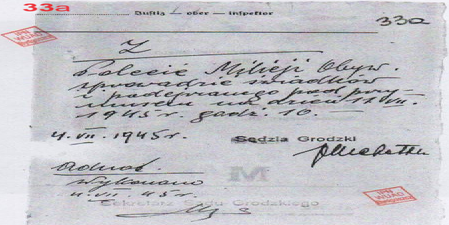 33a
Justiz – ober – inspektor
33a
Z
Polecić Milicji Obyw.
sprowadzić świadków
i podejrzanego pod przy-
musem na dzień 12 VII.
1945 r. godz. 10. —
4. VII. 1945 r.
Sędzia Grodzki
Adnot.
Wykonano
4. VII. 45 r.
Sekretarz Sądu Grodzkiego